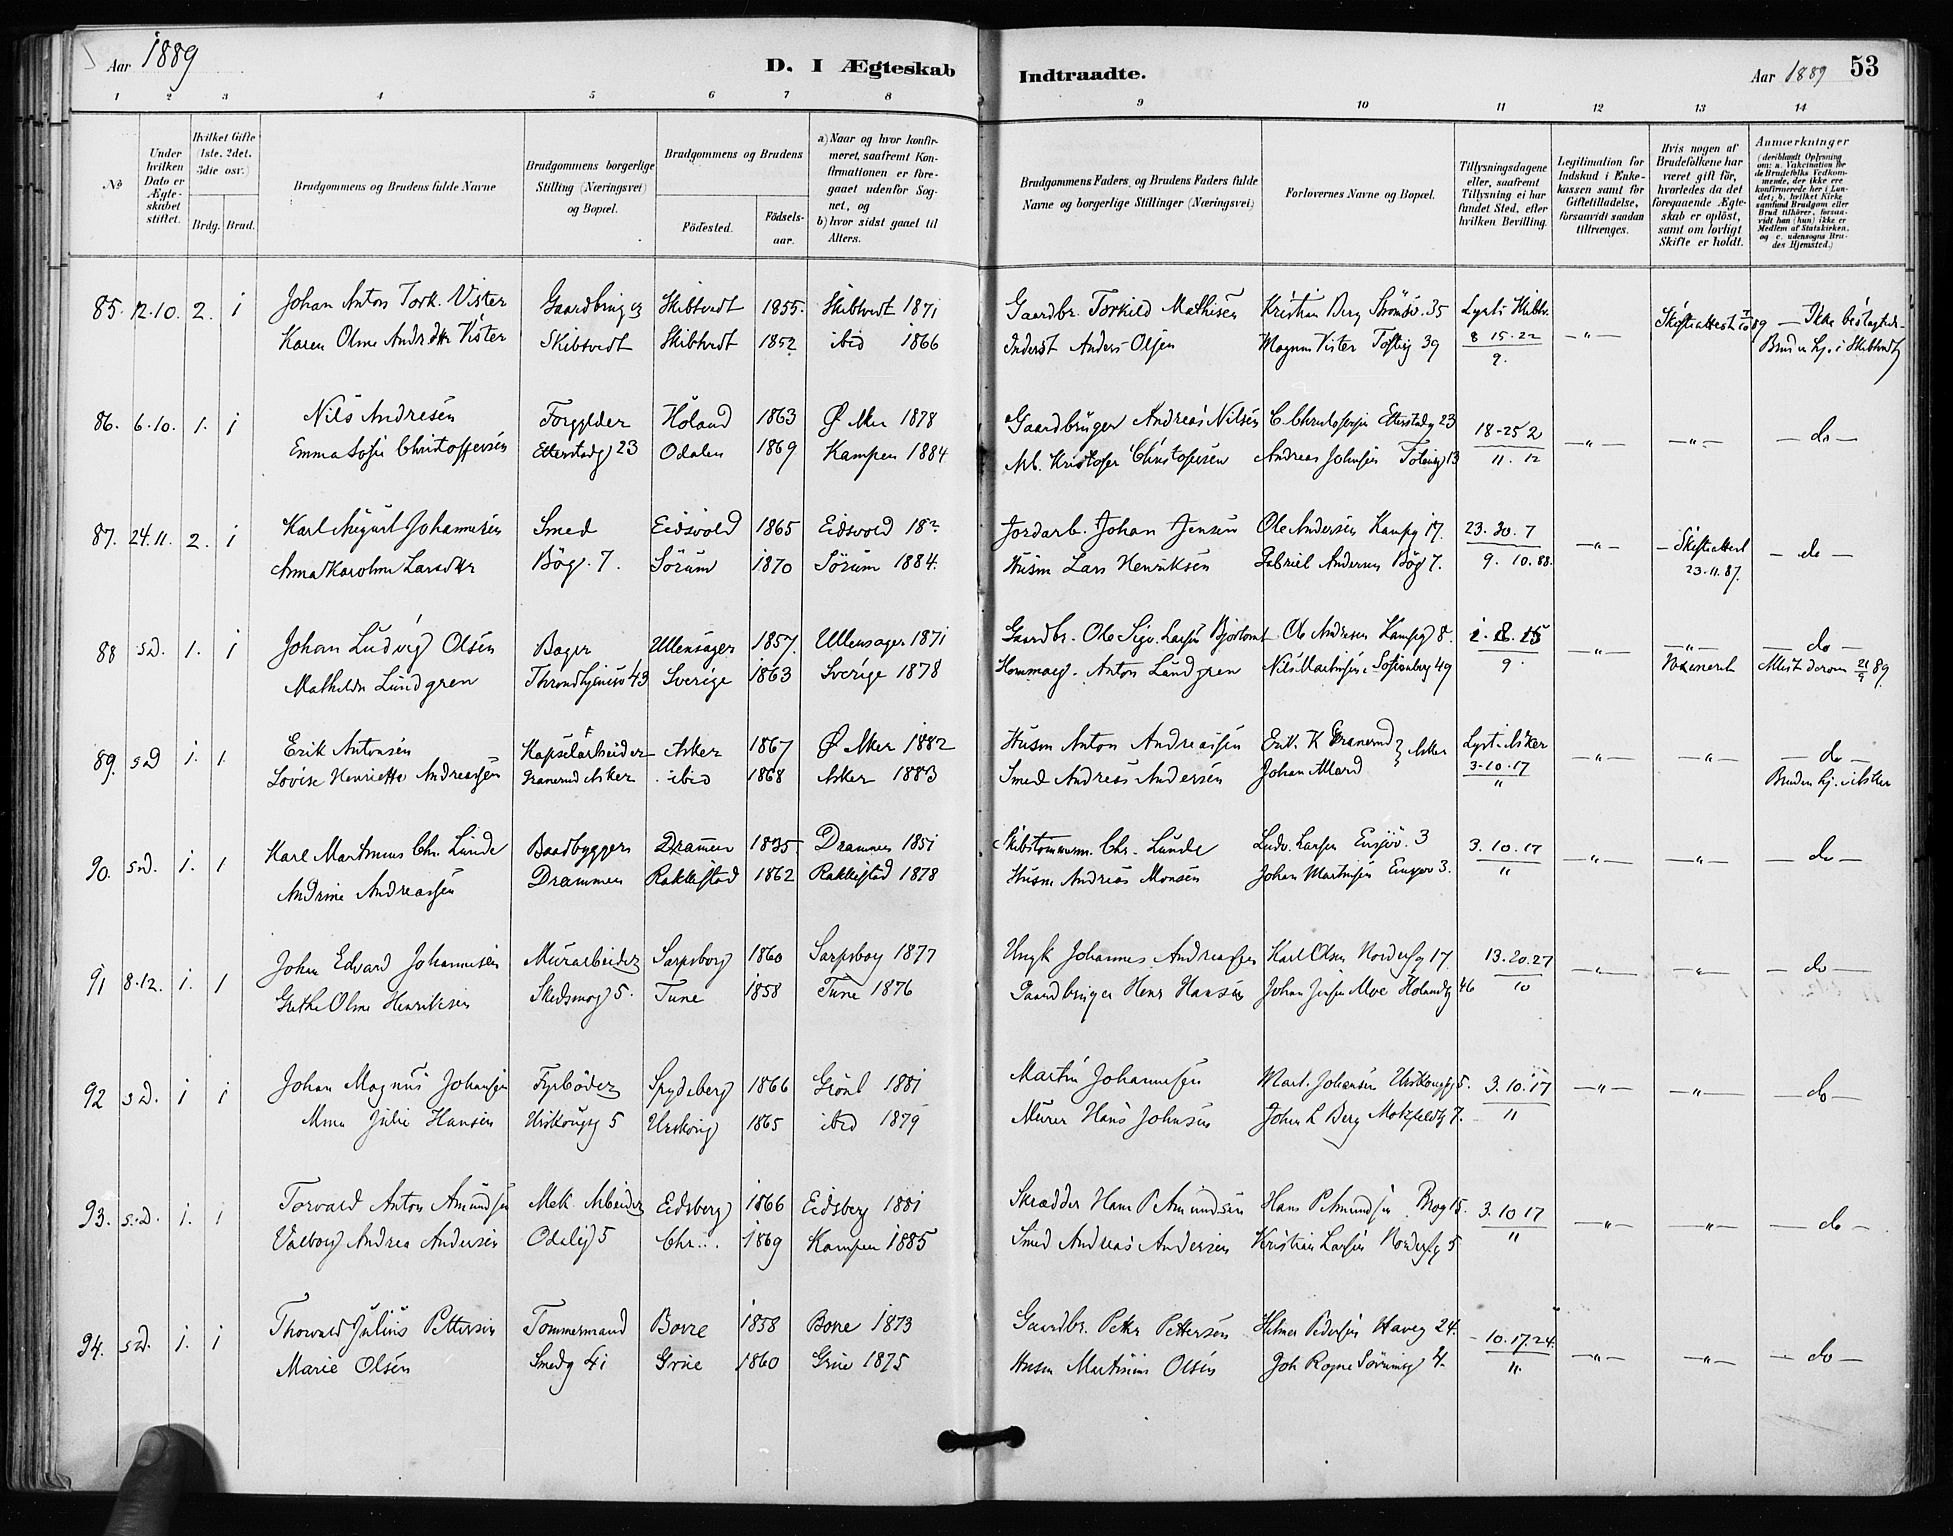 Aar 1889
D. I Ægteskab Indtraadte.
Aar 1889 53
1 2 3 4 5 6 7 8 9 10 11 12 13 14
No
Under hvilken Dato er Ægteskabet stiftet.
Hvilket Gifte (1ste, 2det, 3die osv.)
Brdg. Brud.
Brudgommens og Brudens fulde Navne
Brudgommens borgerlige Stilling (Næringsvei) og Bopæl.
Brudgommens og Brudens
Fødested.
Fødselsaar.
a) Naar og hvor konfirmeret, saafremt Konfirmationen er foregaaet udenfor Sognet, og
b) hvor sidst gaaet til Alters.
Brudgommens Faders og Brudens Faders fulde Navne og borgerlige Stillinger (Næringsvei)
Forlovernes Navne og Bopæl.
Tillysningsdagene eller, saafremt Tillysning ei har fundet Sted, efter hvilken Bevilling.
Legitimation for Indskud i Enkekassen samt for Giftetilladelse, forsaavidt saadan tiltrænges.
Hvis nogen af Brudefolkene har været gift før, hvorledes da det foregaaende Ægteskab er opløst, samt om lovligt Skifte er holdt.
Anmærkninger
(deriblandt Oplysning om: a. Vakcination for de Brudefolks Vedkommende, der ikke ere konfirmerede her i Landet; b. hvilket Kirkesamfund Brudgom eller Brud tilhører, forsaavidt han (hun) ikke er Medlem af Statskirken, og c. udensogns Brudes Hjemsted.)
85. 12.10. 2. 1 Johan Anton Tork. Vister Gaardbruger Skibtvedt 1855. Skibtvedt 1871 Gaardbr. Torkild Mathisen Kristian Berg Strömsv. 35 Lyst i Skibtv. Skifteattest 89 Ikke beslægtede
Karen Oline Andrdttr Vister Skibtvedt Skibtvedt 1852 ibid 1866 Inderst Anders Olsen Magnus Vister Töftesg 39 8 15. 22 —"— Bruden hj. i Skibtvedt
9.
86. 6.10. 1. 1 Nils Andresen Forgylder Höland 1863 Ø Aker 1878 Gaardbruger Andreas Nilsen C. Christofersen Etterstadg 23 18-25 2 —"— —"— — do —
Emma Sofie Christoffersen Etterstadg 23 Odalen 1869 Kampen 1884 Arb. Kristofer Christofersen Andreas Johnsen 13 11. 12
87. 24.11. 2. 1 Karl August Johannesen Smed Eidsvold 1865 Eidsvold 18? Jordarb. Johan Jensen Ole Andersen Kampg 17. 23. 30. 7 —"— Skifteattest — do —
Anna Karoline Larsdttr Bög. 7. Sörum 1870 Sörum 1884. Husm Lars Henriksen Gabriel Andersen Bög 7. 9. 10. 88. 23.11.87.
88 s.d. 1. 1 Johan Ludvig Olsen Bager Ullensager 1857. Ullensager 1871 Gaardbr. Ole Sigv. Larsen Ole Andersen Kampg 8. 1. 8. 15 —"— —"— — do —
Mathilda Lundgren Throndhjemsv 43 Sverige 1863 Sverige 1878 Anton Lundgren Nils Martinsen Sofienberg 49 9. Attest derom 21/9 89
89. s d 1. 1. Erik Antonsen Kapselarbeider Asker 1867 Ø Aker 1882 Husm Anton Andreassen Erik K Granerud } Asker Lyst i Asker —"— —"— — do —
Lovise Henriette Andreassen Granerud Asker ibid 1868 Asker 1883 Smed Andreas Andersen Johan 3-10.17 Bruden hj. i Asker
11
90. s.d. 1. 1 Karl Martinius Chr. Lunde Baadbygger Dramen 1835 Drammen 1851 Skibstömmerm. Chr. Lunde Ludv. Larsen Ensjöv. 3 3. 10. 17 —"— —"— — do —
Andrine Andreassen Drammen Rakkestad 1862 Rakkestad 1878 Husm Andreas Monsen Johan Martinsen Ensjöv 3. 11
91 8.12. 1. 1 Johan Edvard Johannesen Murarbeider Sarpsborg 1860 Sarpsborg 1877 Johannes Andreassen Karl Olsen Norderhg 17 13.20.27 —"— —"— — do —
Grethe Oline Henriksen Skedsmog 5. Tune 1858 Tune 1876 Gaardbruger Henr Hansen Johan Jensen Moe Hölandsg 46 10
92 s d. 1 1 Johan Magnus Johansen Fyrböder Spydeberg 1866 Grönl 1881 Martin Johannesen Mart. Johansen Urskougsg 5. 3.10.17 —"— —"— — do —
Anna Julie Hansen Urskougsg 5 Urskoug 1865 ibid 1879 Murer Hans Johnsen Johan L Berg Motzfeldtg 7. 11
93. s.d. 1. 1 Torvald Anton Amundsen Mek. Arbeider Eidsberg 1866 Eidsberg 1881 Skrædder Hans P Amundsen Hans P Amundsen Bog 15. 3. 10 17 —"— —"— — do —
Valborg Andrea Andersen 5 Chr. 1869 Kampen 1885 Smed Andreas Andersen Kristian Larsen Norderhg 5 11
94. s d. 1. 1 Thorvald Julius Pettersen Tømmermand Borre 1858 Borre 1873 Gaardbr. Peter Pettersen Hilmer Pedersen Haveg 24. 10.17.24. —"— —"— — do —
Marie Olsen Smedg 41 Grue 1860 Grue 1875 Husm Martinius Olsen Joh Rogne Sörumsg 4. 11.